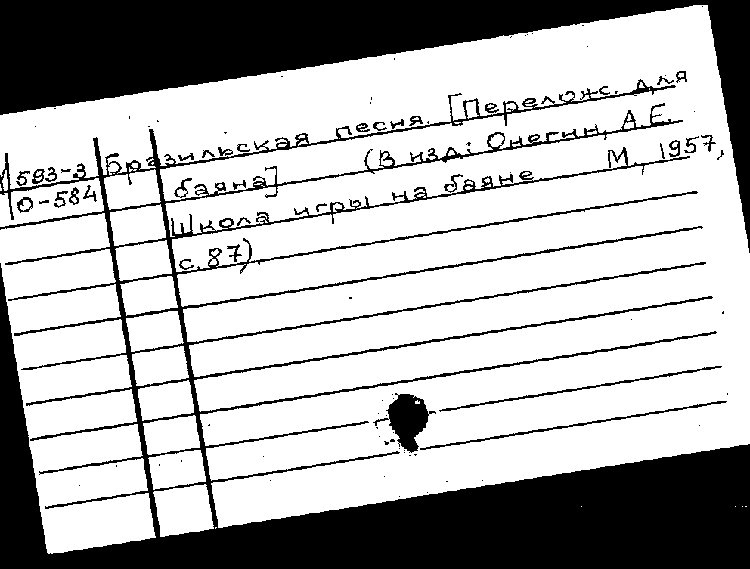 593-3
О-584
Бразильская песня. [Перелож. для
баяна] (В изд.: Онегин, А.Е.
Школа игры на баяне. М., 1957,
с. 87).